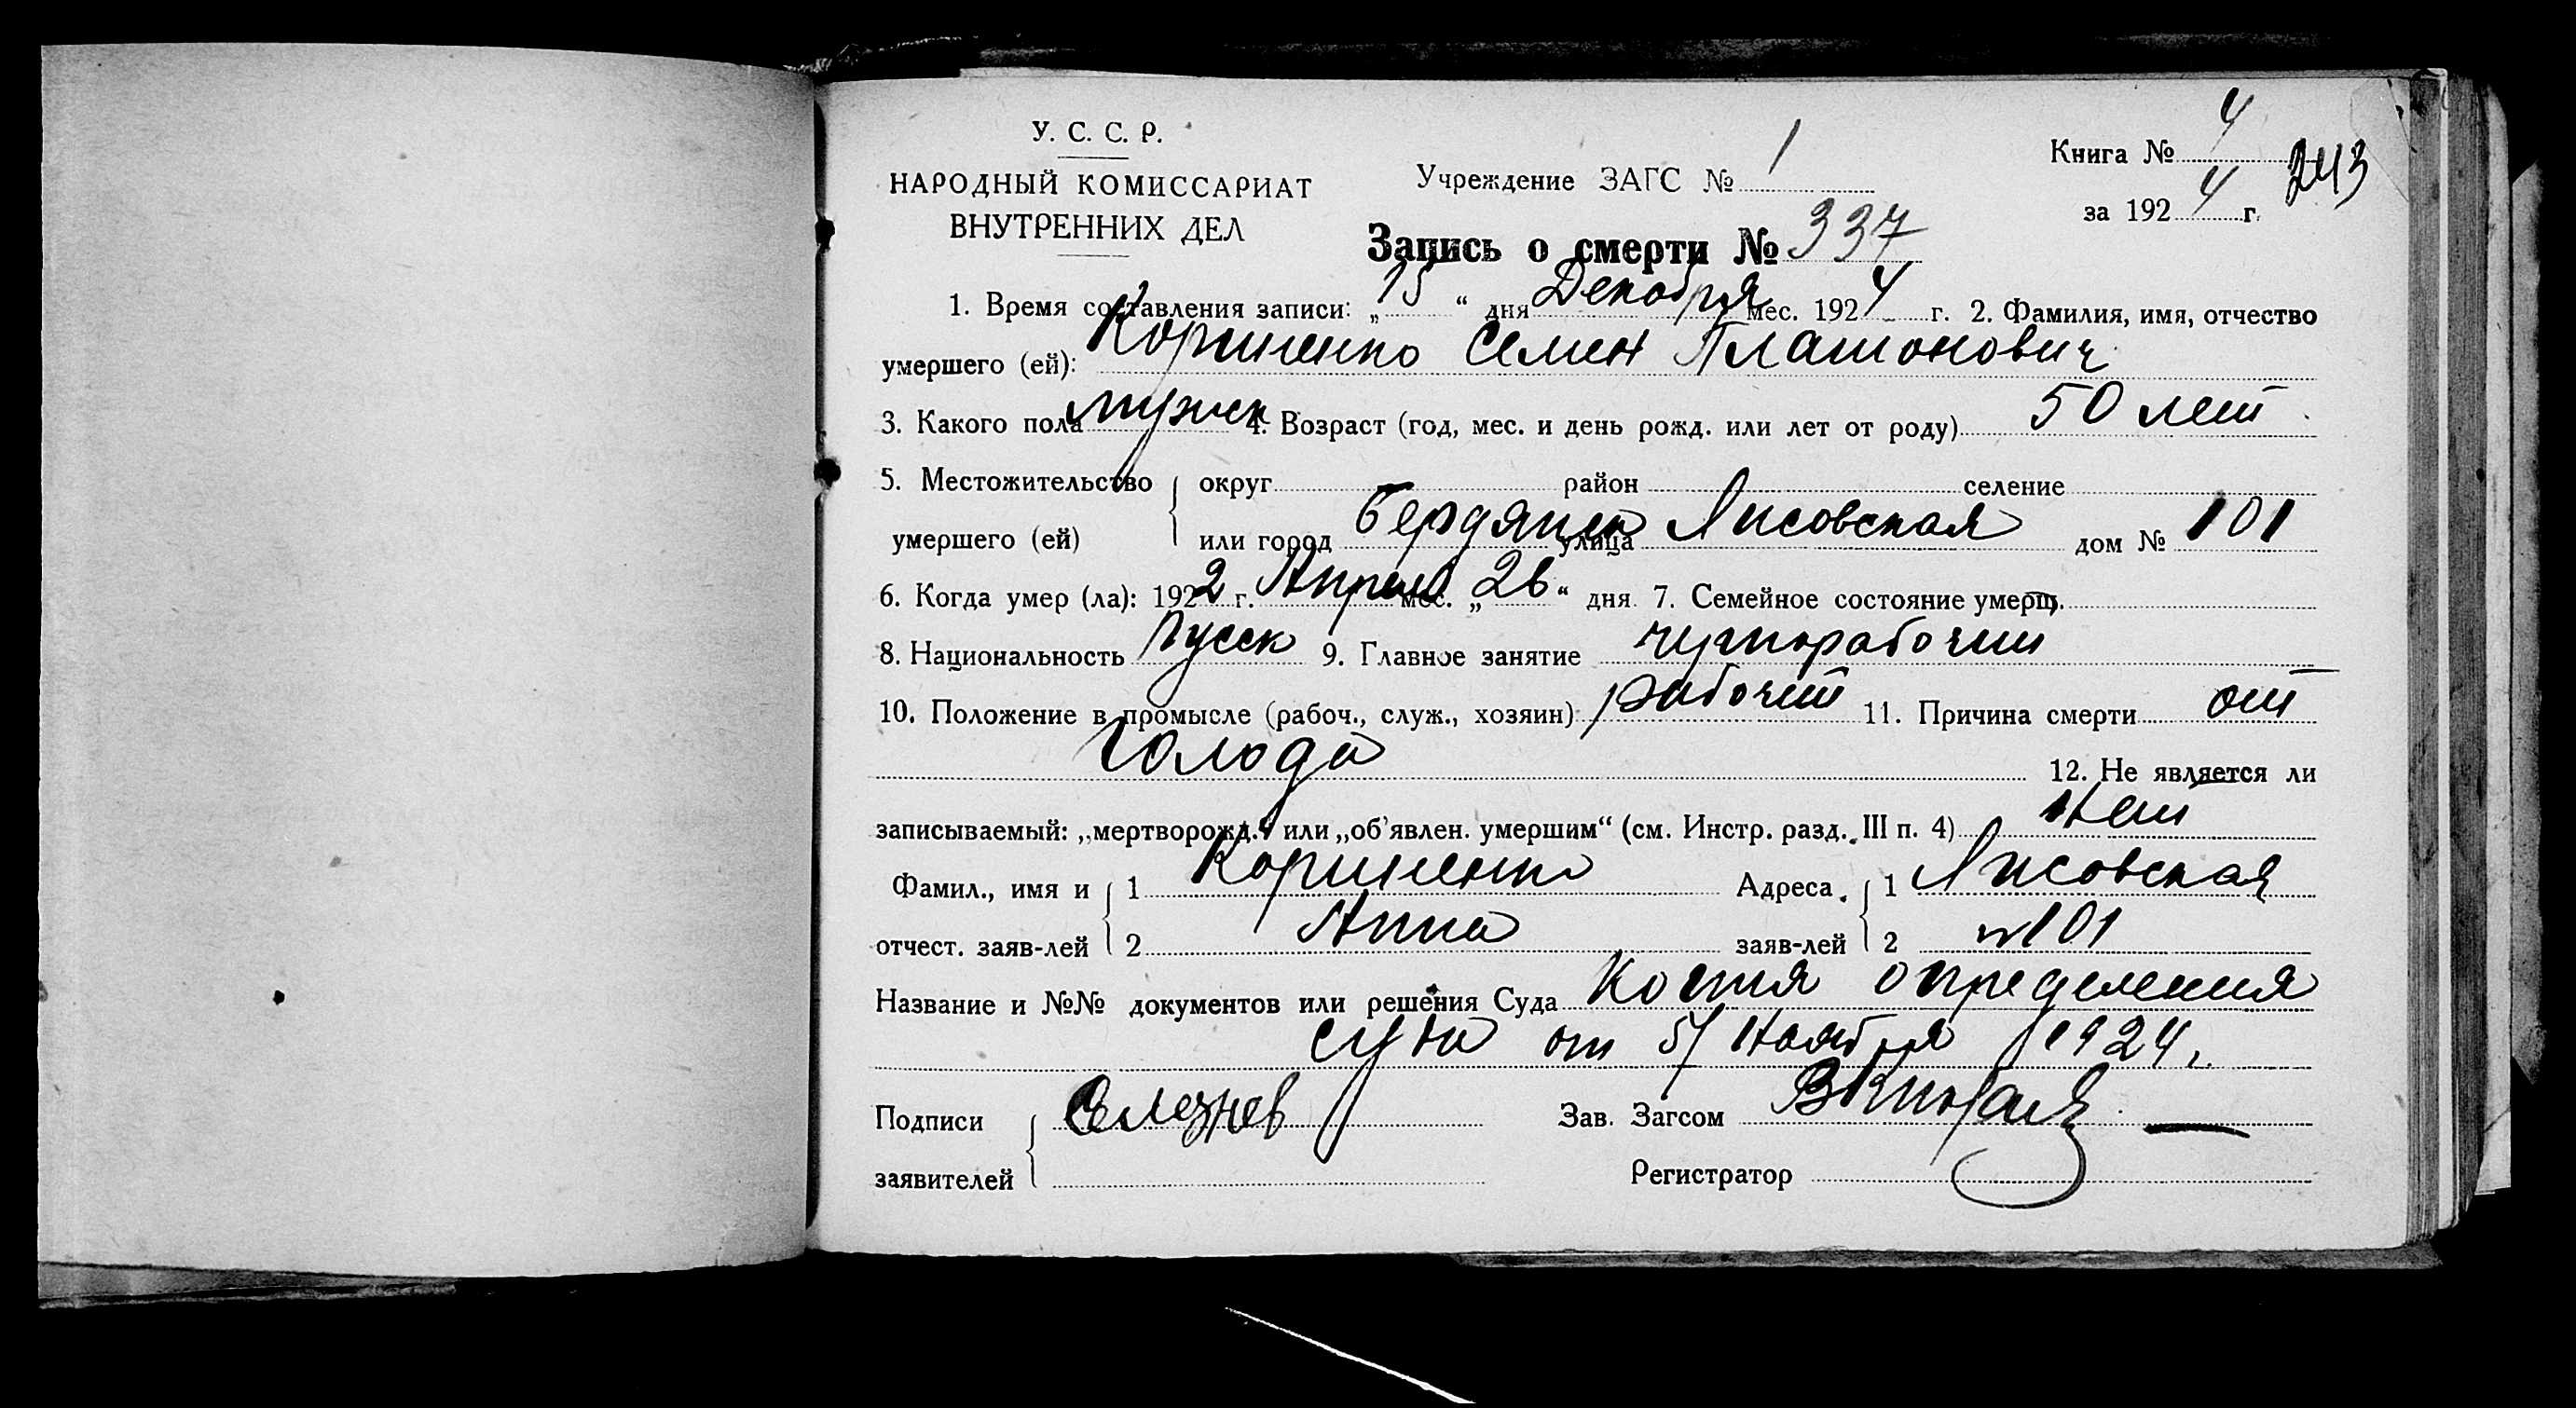 У. С. С. Р.
НАРОДНЫЙ КОМИССАРИАТ
ВНУТРЕННИХ ДЕЛ
Учреждение ЗАГС № 1
Книга № 4
243
за 1924 г.
Запись о смерти № 337
1. Время составления записи: „15“ дня Декабря мес. 1924 г. 2. Фамилия, имя, отчество
умершего (ей): Семен Платонович
3. Какого пола мужск 4. Возраст (год, мес. и день рожд. или лет от роду) 50 лет
5. Местожительство округ район селение
умершего (ей) или город Бердянск улица Лисовская дом № 101
6. Когда умер (ла): 1922 г. Апреля мес. „26“ дня 7. Семейное состояние умерш.
8. Национальность русск 9. Главное занятие чернорабочий
10. Положение в промысле (рабоч., служ., хозяин) рабочий 11. Причина смерти от
голода
12. Не является ли
записываемый: „мертворожд.“ или „об’явлен. умершим“ (см. Инстр. разд. III п. 4) нет
Фамил., имя и 1 Адреса 1 Лисовская
отчест. заяв-лей 2 Анна заяв-лей 2 №101
Название и №№ документов или решения Суда Копия определения
суда от 5/ Ноября 1924 г.
Подписи Селезнев Зав. Загсом
заявителей Регистратор